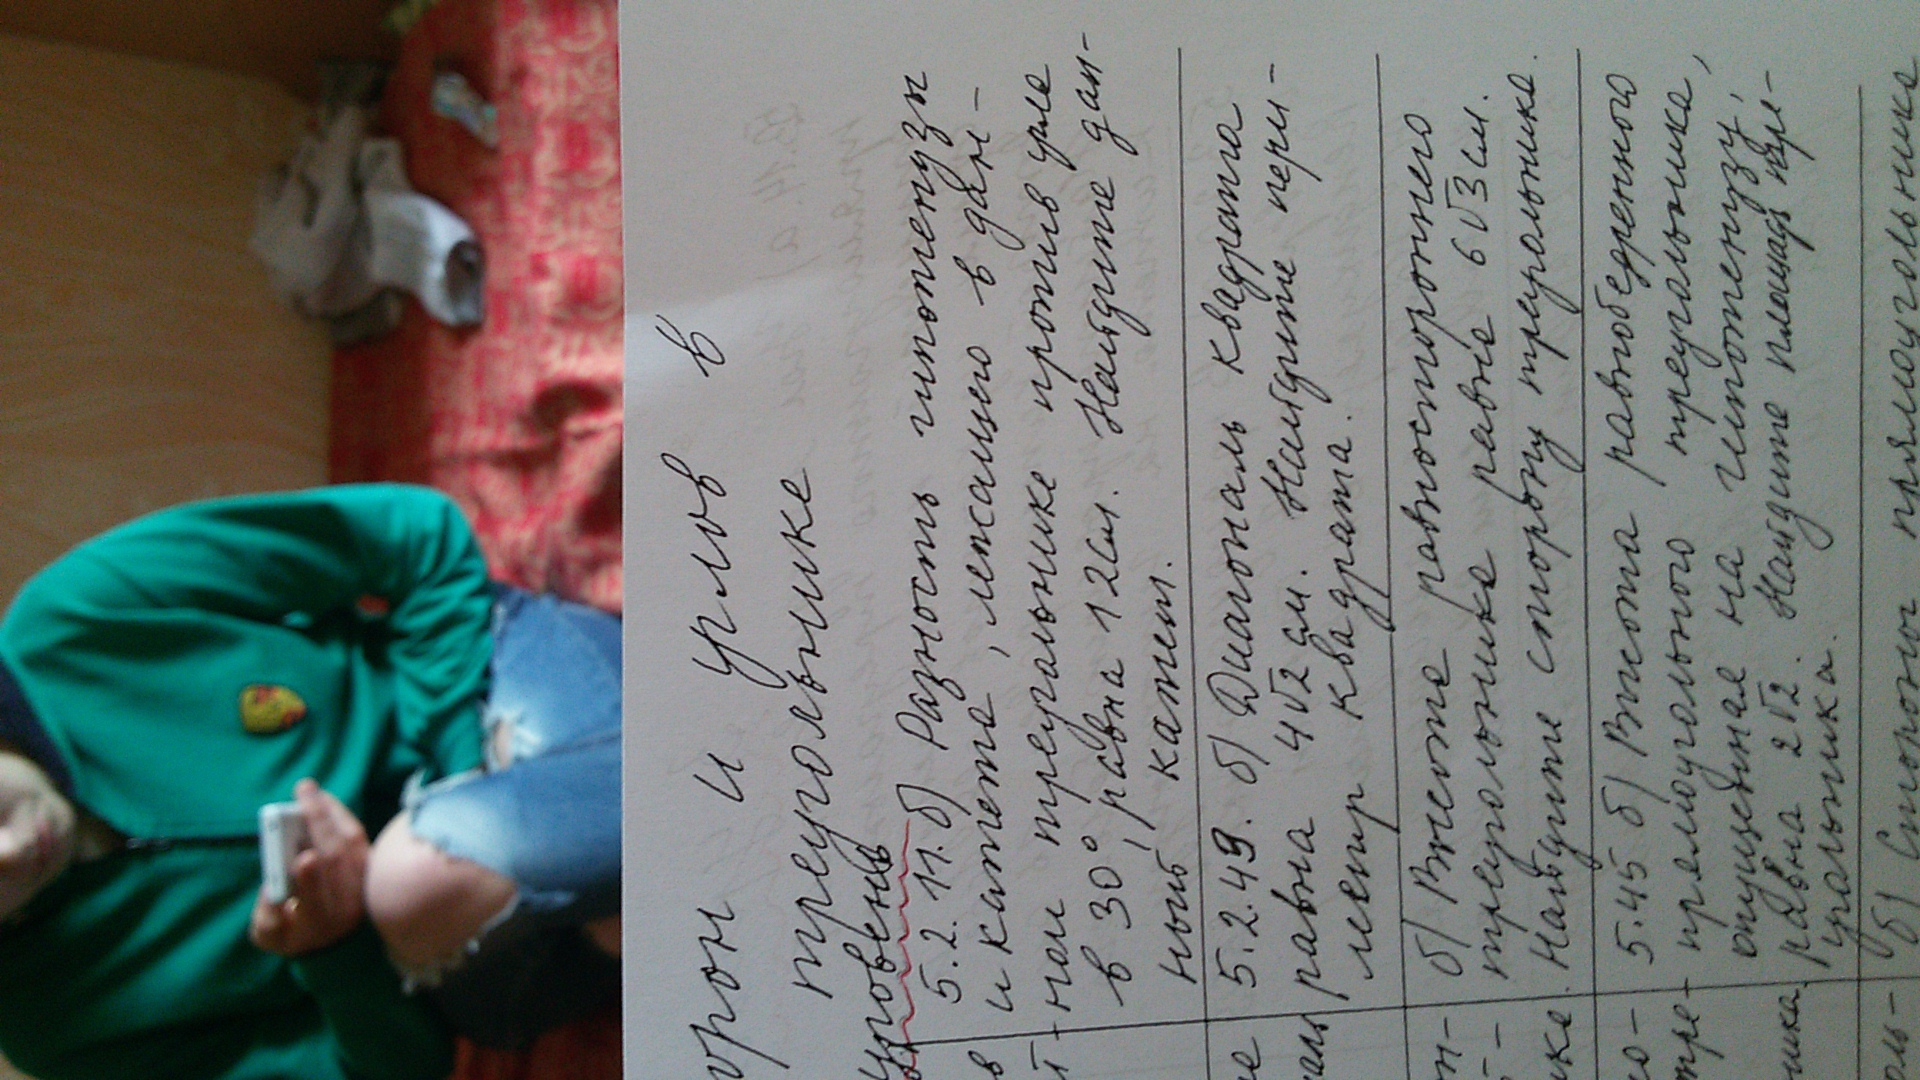 орон и углов в
треугольнике
уровень
5.2.11. б) Разность гипотенузы
в и катета, лежащего в дан-
т- ном треугольнике против угла
в 30°, равна 12 см. Найдите дан-
ный катет.
5.2.49. б) Диагональ квадрата
равна 4√2 см. Найдите пери-
метр квадрата.
он- б) Высота равностороннего
треугольника равна 6√3 см.
ике. Найдите сторону треугольника.
5.45 б) Высота равнобедренного
тре- прямоугольного треугольника,
опущенная на гипотенузу,
ника. равна 2√2. Найдите площадь тре-
угольника.
оль- б) Стороны прямоугольника